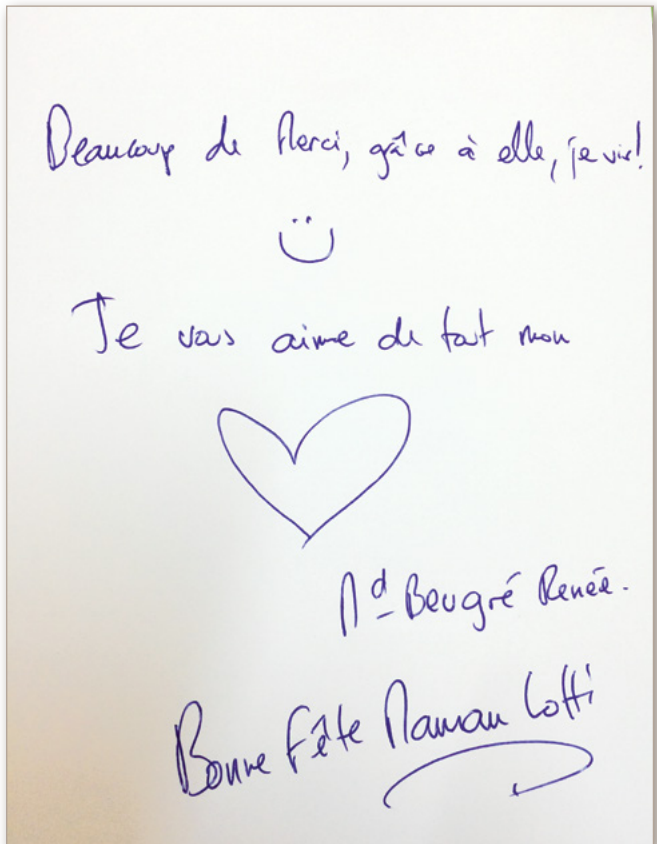 Beaucoup de Merci, grâce à elle, je vis!
Je vous aime de tout mon
Md Beugré Renée.
Bonne Fête Maman Lotti